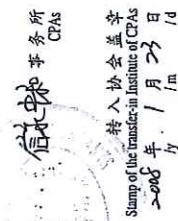 信永中和 事务所
CPAs
转入协会盖章
Stamp of the transfer-in Institute of CPAs
2008 年 1 月 23 日
/y /m /d